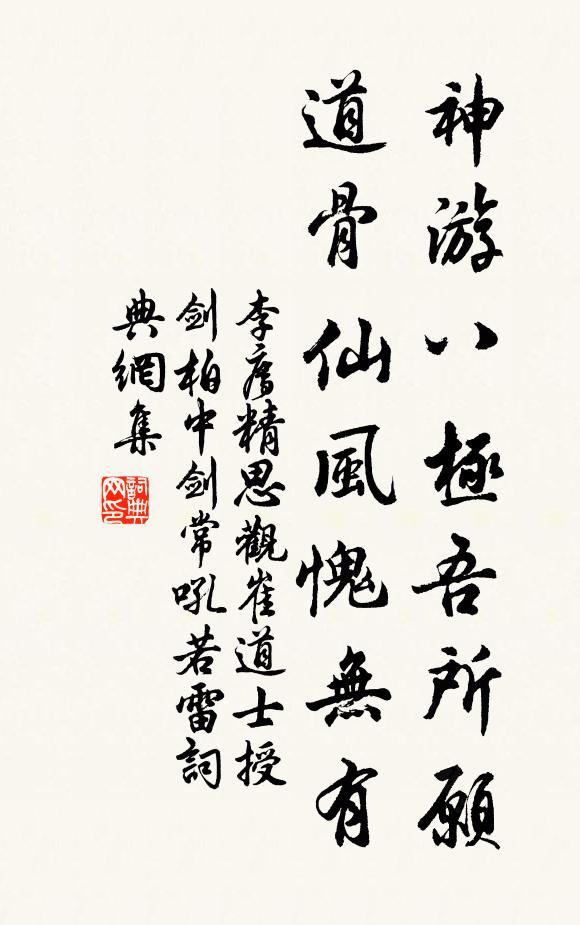 神游八極吾所願
道骨仙風愧無有
李廌精思觀崔道士授
劍柏中劍常吼若雷詞
典網集
詞典
网印